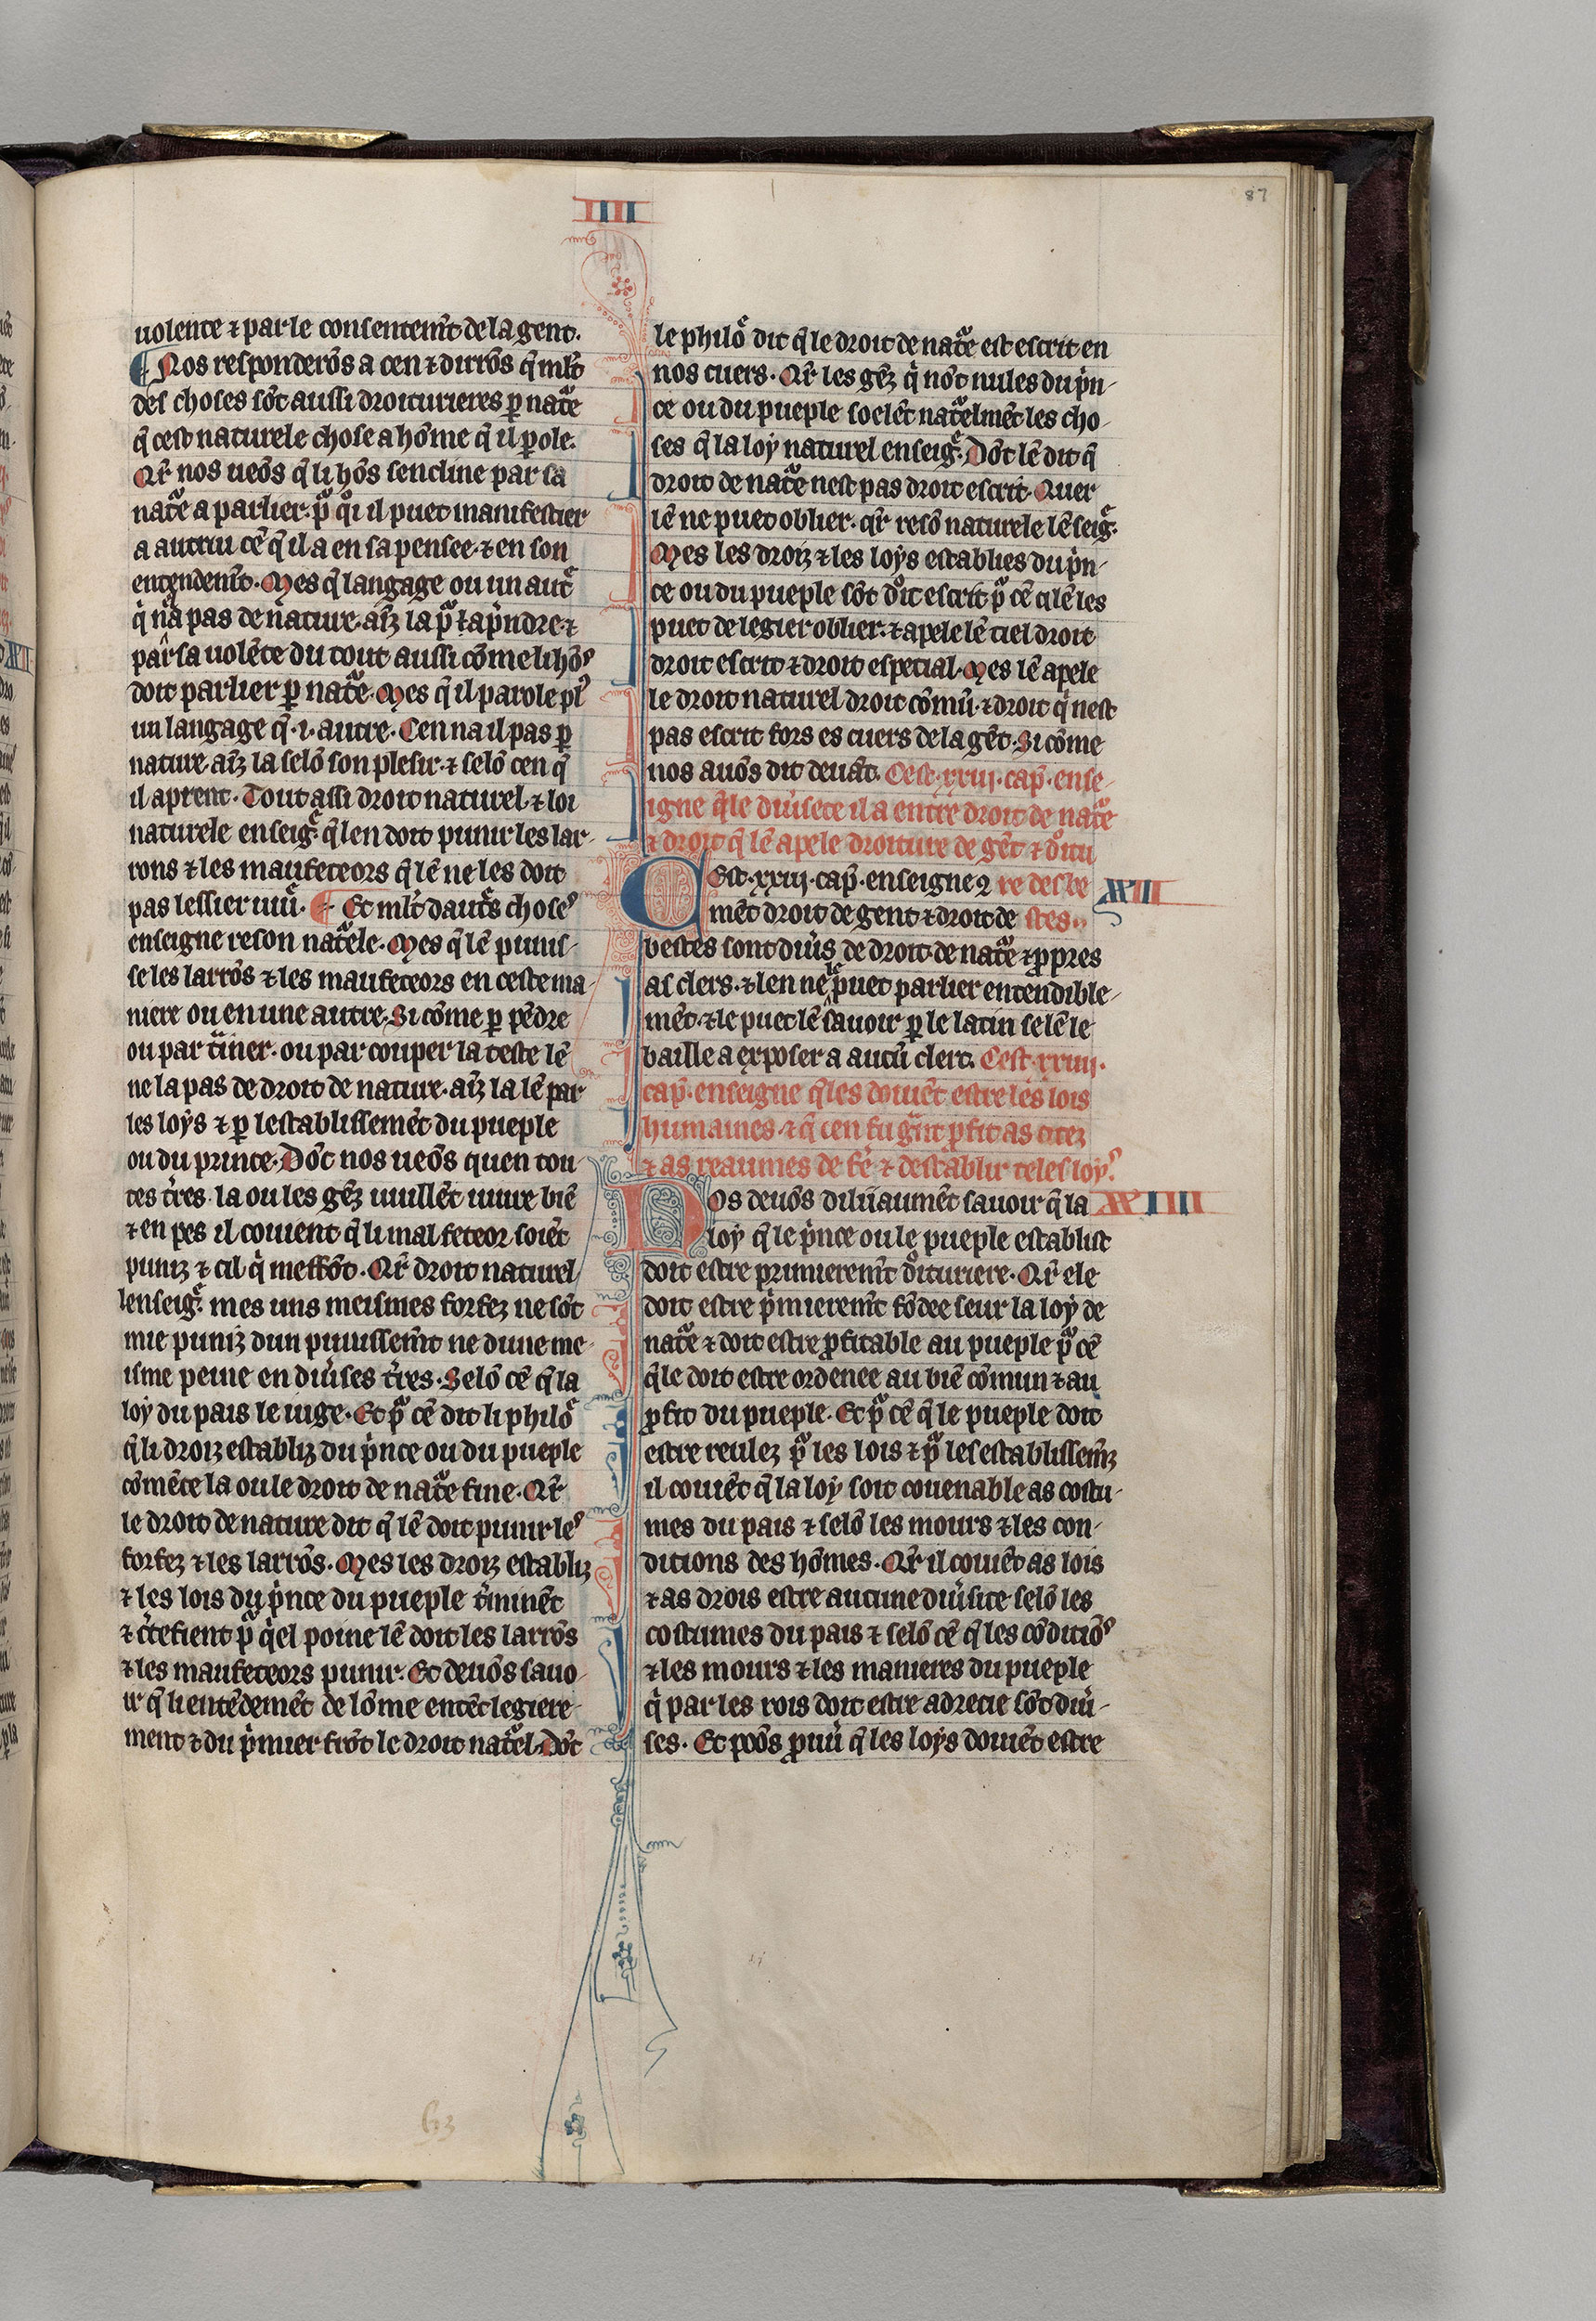 IIII
87
uolente ⁊ par le consentem̃t de la gent.
¶ Nos responderõs a cen ⁊ dirrõs q̃ ml̃t
des choses sõt aussi droiturieres ꝑ natᷓe
q̃ cest naturele chose a hõme q̃ il ꝑole.
Qr̃ nos ueõs q̃ li hõs sencline par sa
natᷓe a parlier. pᷓ qͦi il puet manifestier
a autrui cẽ q̃ il a en sa pensee. ⁊ en son
entendem̃t. Mes q̃ langage ou un autᷓ
qͥ na pas de nature. aĩz la pᷓ la pͥndre. ⁊
par sa uolẽte du tout aussi cõme li hõs
doit parlier ꝑ natᷓe. Mes q̃ il parole plꝰ
un langage q̃ .i. autre. Cen na il pas ꝑ
nature. aĩz la selõ son plesir. ⁊ selõ cen q̃
il aprent. Tout assi droit naturel. ⁊ loi
naturele enseigᷓ. q̃ len doit punir les lar-
rons ⁊ les maufeteors q̃ lẽ ne les doit
pas lessier uiuᷓ. ¶ Et ml̃t dautᷓs choses
enseigne reson natᷓele. Mes q̃ lẽ punis-
se les larrõs ⁊ les maufeteors en ceste ma-
niere ou en une autre. Si cõme ꝑ pẽdre
ou par tᷓiner. ou par couper la teste lẽ
ne la pas de droit de nature. aĩz la lẽ par
les loys ⁊ ꝑ lestablissemẽt du pueple
ou du prince. Dõt nos ueõs quen tou-
tes tr̃es. la ou les gẽz uuillẽt uiure biẽ
⁊ en pes il couient q̃ li mal feteor soiẽt
puniz ⁊ cil qͥ meffõt. Qr̃ droit naturel
lenseigᷓ. mes uns meismes forfez ne sõt
mie puniz dun punissem̃t ne dune me-
isme peine en diũses tr̃es. Selõ cẽ q̃ la
loy du pais le iuge. Et pᷓ cẽ dit li philoᷓ
q̃ li droiz establiz du pͥnce ou du pueple
cõmẽce la ou le droit de natᷓe fine. Qr̃
le droit de nature dit q̃ lẽ doit punir les
forfez ⁊ les larrõs. Mes les droiz establiz
⁊ les lois du pͥnce du pueple tr̃minẽt
⁊ cͥtefient pᷓ q̃el poine lẽ doit les larrõs
⁊ les maufeteors punir. Et deuõs sauo-
ir q̃ li entẽdemẽt de lõme entẽt legiere-
ment ⁊ du pͥmier frõt le droit natᷓel. Dõt
le philoᷓ dit q̃ le droit de natᷓe est escrit en
nos cuers. Qr̃ les gẽz qͥ nõt nules du pͥn-
ce ou du pueple soelẽt natᷓelmẽt les cho-
ses q̃ la loy naturel enseigᷓ. Dõt lẽ dit q̃
droit de natᷓe nest pas droit escrit. Quer
lẽ ne puet oblier. qr̃ resõ naturele lẽseigᷓ.
Mes les droiz ⁊ les loys establies du pͥn-
ce ou du pueple sõt dͦit escrit pᷓ cẽ q̃ lẽ les
puet de legier oblier. ⁊ apele lẽ tiel droit
droit escrit ⁊ droit especial. Mes lẽ apele
le droit naturel droit cõmũ. ⁊ droit qͥ nest
pas escrit fors es cuers de la gẽt. Si cõme
nos auõs dit deuãt. Cest .xxiii. cap̃. ense-
igne q̃le diũsete il a entre droit de natᷓe
⁊ droit q̃ lẽ apele droiture de gẽt ⁊ dͦitu
Cest .xxiii. cap̃. enseigne 9 re de be
XXIII
mẽt droit de gent ⁊ droit de stes..
bestes sont diũs de droit de natᷓe ⁊ ꝓpres
as clers. ⁊ len ne le puet parlier entendible-
mẽt. ⁊ le puet lẽ sauoir ꝑ le latin se lẽ le
baille a exposer a aucũ clerc. Cest .xxiiii.
cap̃. enseigne q̃les doiuẽt estre les lois
humaines. ⁊ q̃ cen fu gᷓnt ꝓfit as citez
⁊ as reaumes de fẽ ⁊ destablir teles loys.
Nos deuõs diliᷓaumẽt sauoir q̃ la
XXIIII
loy q̃ le pͥnce ou le pueple establist
doit estre primierem̃t dͦituriere. Qr̃ ele
doit estre pͥmierem̃t fõdee seur la loy de
natᷓe ⁊ doit estre ꝓfitable au pueple pᷓ cẽ
q̃le doit estre ordenee au biẽ cõmun ⁊ au
ꝓfit du pueple. Et pᷓ cẽ q̃ le pueple doit
estre reulez pᷓ les lois ⁊ pᷓ les establissem̃z
il couiẽt q̃ la loy soit couenable as costu-
mes du pais ⁊ selõ les mours ⁊ les con-
ditions des hõmes. Qr̃ il couiẽt as lois
⁊ as drois estre aucune diũsite selõ les
costumes du pais ⁊ selõ cẽ q̃ les cõditiõs
⁊ les mours ⁊ les manieres du pueple
qͥ par les rois doit estre adrecie sõt diũ-
ses. Et poõs ꝓuũ q̃ les loys doiuẽt estre